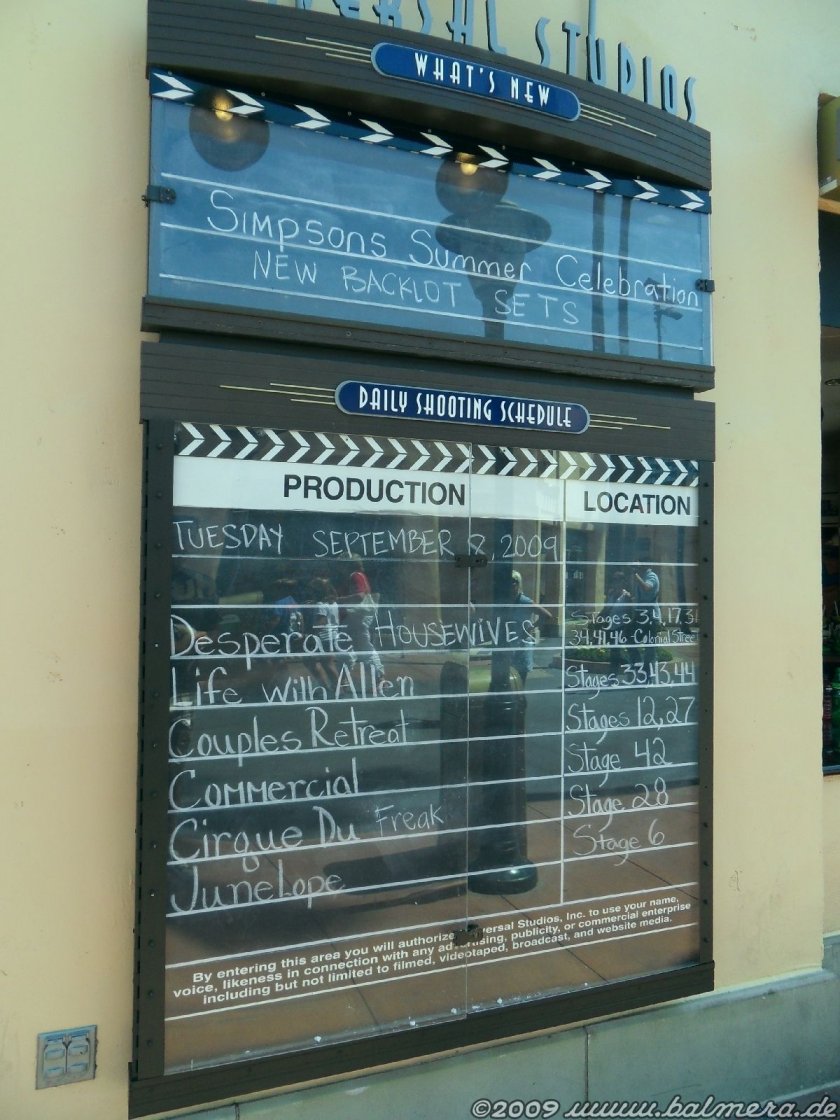 UNIVERSAL STUDIOS
WHAT'S NEW
Simpsons Summer Celebration
NEW BACKLOT SETS
DAILY SHOOTING SCHEDULE
PRODUCTION LOCATION
TUESDAY SEPTEMBER 8, 2009
Desperate HOUSEWIVES Stages 3,4,17,31
34,41,46-Colonial Street
Life with Allen Stages 33,43,44
Couples Retreat Stages 12,27
Commercial Stage 42
Cirque Du Freak Stage 28
Junelope Stage 6
By entering this area you will authorize Universal Studios, Inc. to use your name,
voice, likeness in connection with any advertising, publicity, or commercial enterprise
including but not limited to filmed, videotaped, broadcast, and website media.
©2009 www.balmera.de